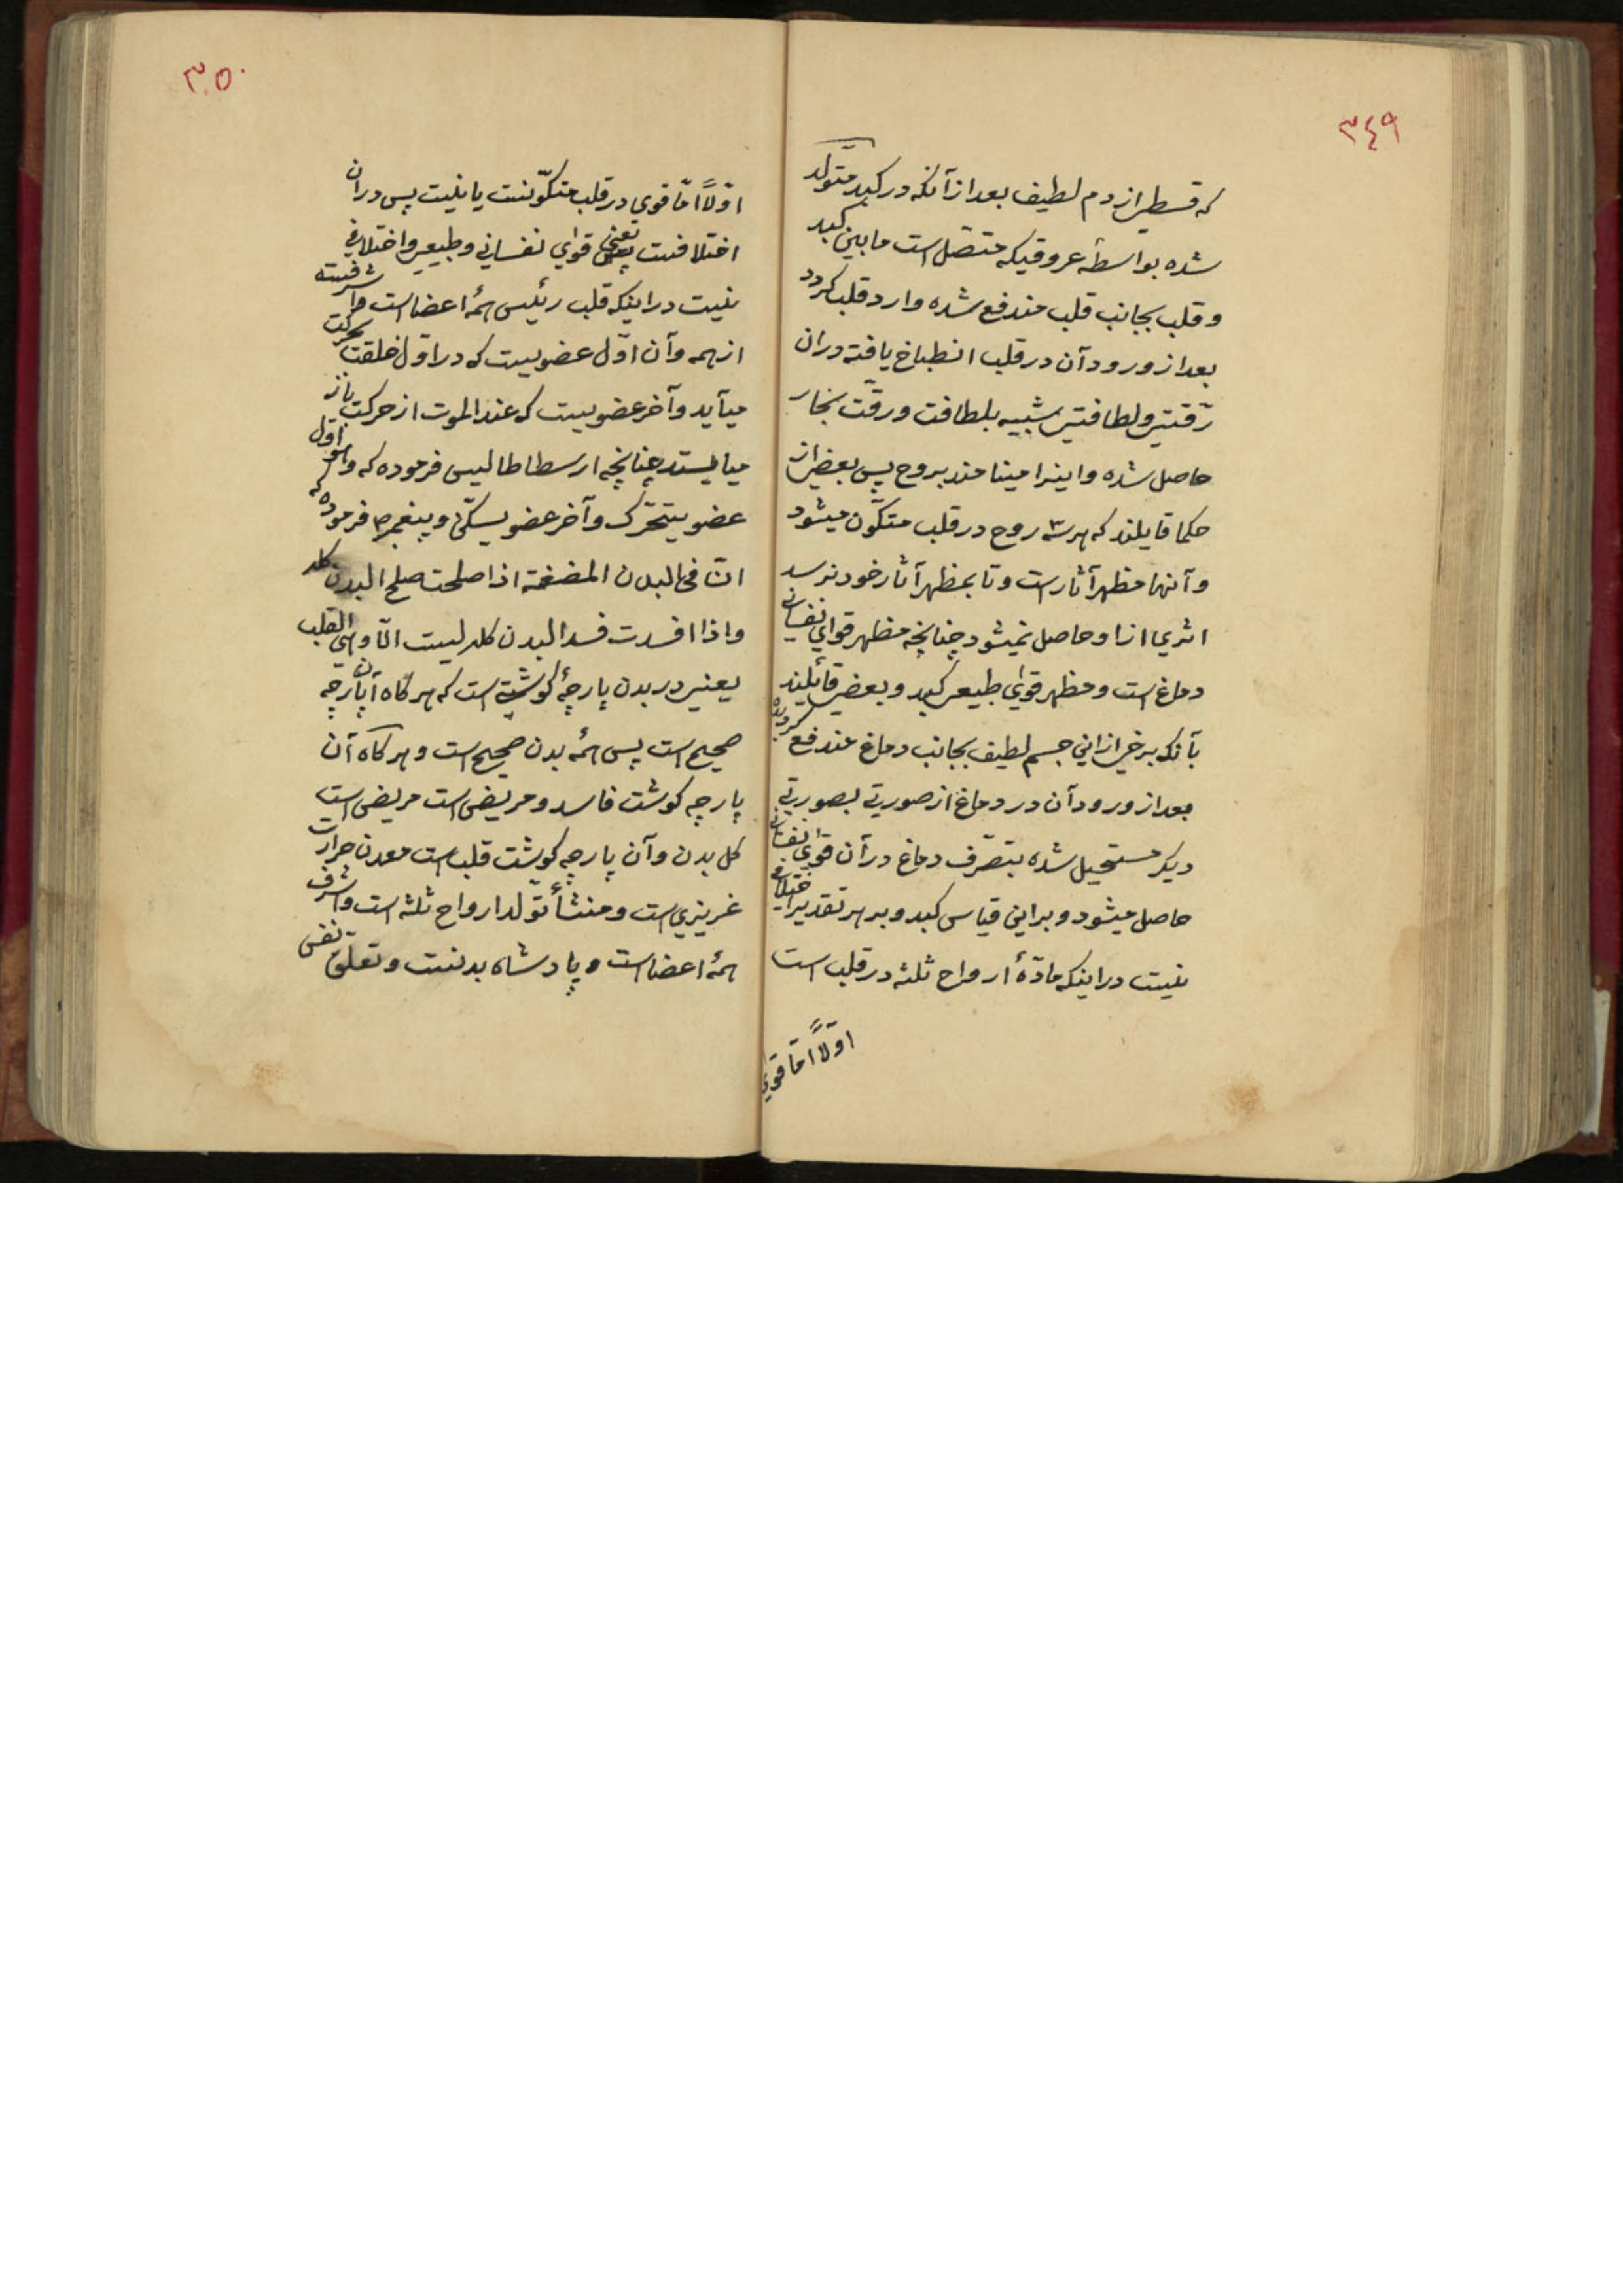 ۳٤۹
که قسطی از دم لطیف بعد از آنکه در کبد متولّد
شده بواسطۀ عروقیکه متصّل است ما بین کبد
و قلب بجانب قلب مندفع شده وارد قلب کردد
بعد از ورود آن در قلب انطباخ یافته دران
رقّتی ولطافتی شبیه بلطافت ورقّت بخار
حاصل شده و اینرا مینامند بروح پس بعضی از
حکما قایلند که هر سه روح در قلب متکّون میشود
و آنها مظهر آثار است و تا بمظهر آثار خود نرسد
اثری از او حاصل نمیشود چنانچه مظهر قوای نفسانی
دماغ است ومظهر قوای طبیعی کبد و بعضی قائلند
بآنکه برخی از این جسم لطیف بجانب دماغ مندفع کردیده
بعد از ورود آن در دماغ از صورتی بصورتی
دیکر مستحیل شده بتصّرف دماغ در آن قوای نفسانی
حاصل میشود و بر این قیاس کبد و بر هر تقدیر اختلافی
نیست در اینکه مادّۀ ارواح ثلثه در قلب است
اوّلاً امّا قوی
۳۵۰
اوّلاً امّا قوی در قلب متکوّنست یا نیست پس دران
اختلافست یعنی قوای نفسانی وطبیعی واختلافی
نیست در اینکه قلب رئیس همۀ اعضا است واشرفست
از همه وآن اوّل عضویست که در اوّل خلقت بحرکت
میآید وآخر عضویست که عند الموت از حرکت باز
میایستد چنانچه ارسطاطالیس فرموده که وهو اوّل
عضو یتحرّک وآخر عضو یسکن وپیغمبر ص فرموده که
انّ فی البدن المضغة اذا صلحت صلح البدن کله
واذا افسدت فسد البدن کله لیست الّا وهی القلب
یعنی در بدن پارچۀ کوشت است که هر کاه آن پارچه
صحیح است پس همۀ بدن صحیح است و هر کاه آن
پارچه کوشت فاسد ومریض است مریض است
کل بدن وآن پارچه کوشت قلب است معدن حرارت
غریزی است ومنشأ تولّد ارواح ثلثه است واشرف
همۀ اعضا است و پادشاه بدنست وتعلّق نفس